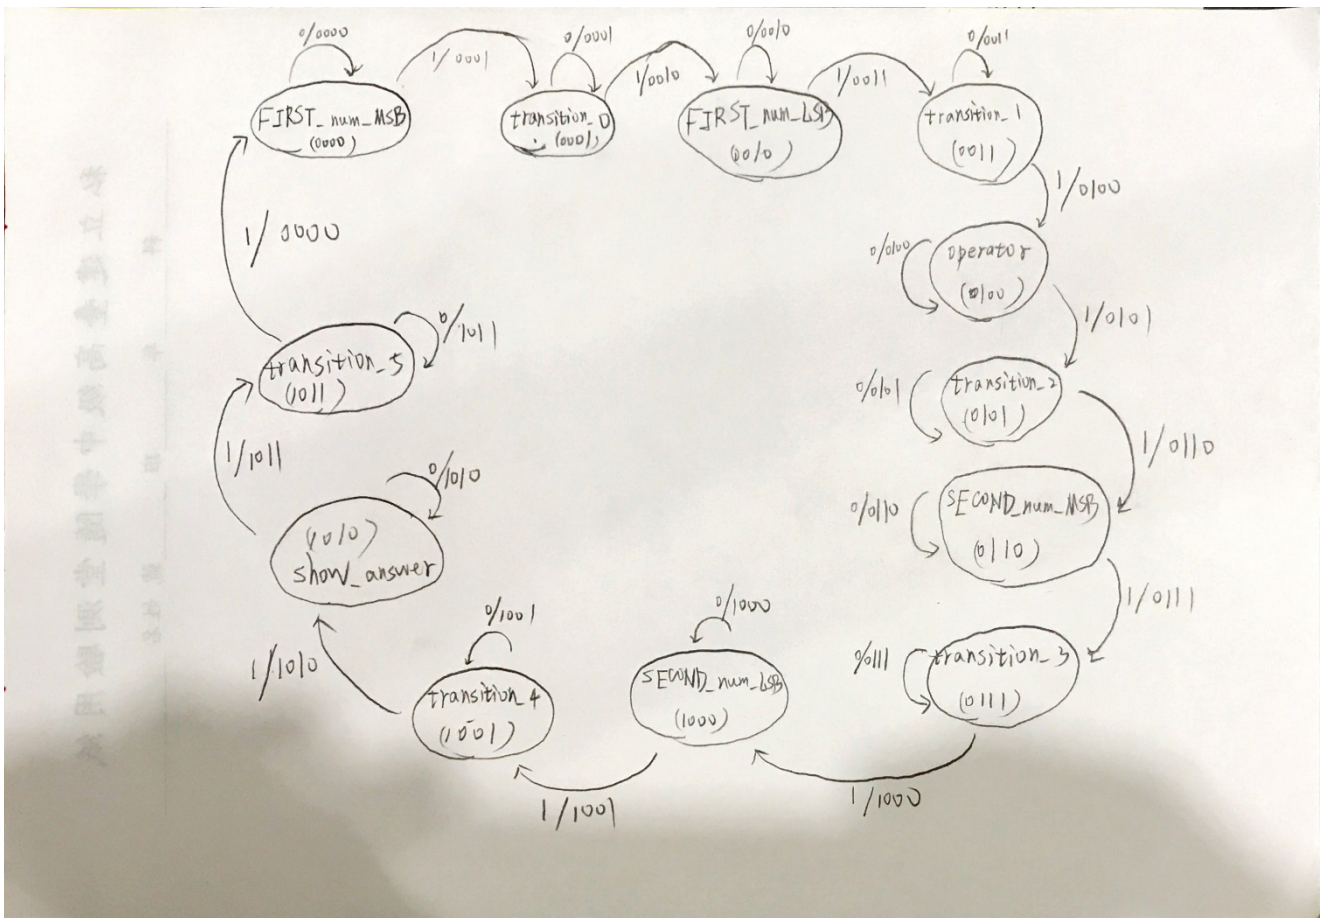 0/0000
1/0001
0/0001
1/0010
0/0010
1/0011
0/0011
FIRST_num_MSB
(0000)
transition_0
(0001)
FIRST_num_LSB
(0010)
transition_1
(0011)
1/0100
0/0100
operator
(0100)
1/0101
0/0101
transition_2
(0101)
1/0110
0/0110
SECOND_num_MSB
(0110)
1/0111
0/0111
transition_3
(0111)
1/1000
0/1000
SECOND_num_LSB
(1000)
1/1001
0/1001
transition_4
(1001)
1/1010
0/1010
(1010)
show_answer
1/1011
0/1011
transition_5
(1011)
1/0000